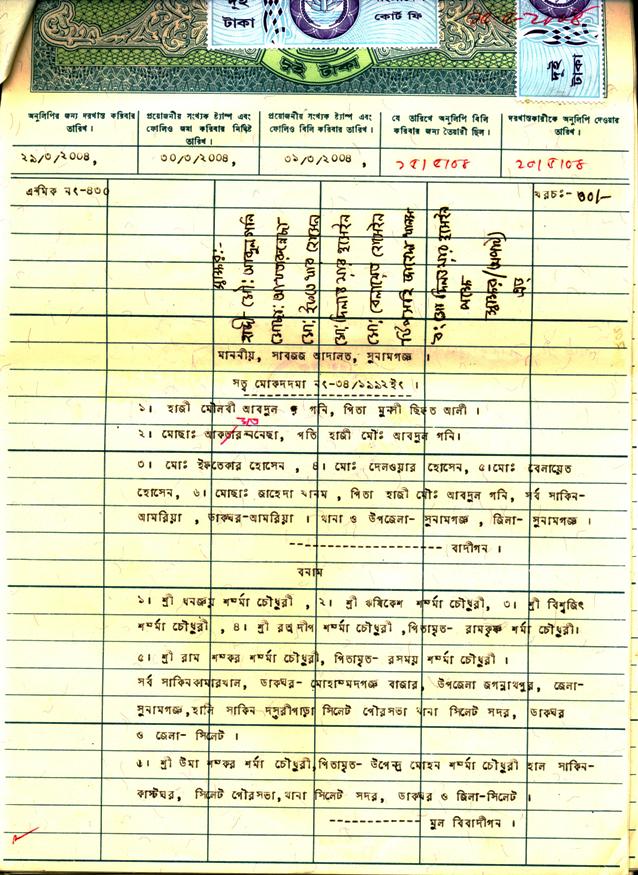 দুই
টাকা
কোর্ট ফি
দুই টাকা
দুই
টাকা
অনুলিপির জন্য দরখাস্ত করিবার তারিখ।
প্রয়োজনীয় সংখ্যক ষ্ট্যাম্প এবং ফোলিও জমা করিবার নির্দ্দিষ্ট তারিখ।
প্রয়োজনীয় সংখ্যক ষ্ট্যাম্প এবং ফোলিও বিলি করিবার তারিখ।
যে তারিখে অনুলিপি বিলি করিবার জন্য তৈয়ারী ছিল।
দরখাস্তকারীকে অনুলিপি দেওয়ার তারিখ।
২৯/৩/২০০৪,
৩০/৩/২০০৪,
৩১/৩/২০০৪,
নং-৪৩০
খরচঃ- ৩০/-
স্বাক্ষর:-
মাননীয়, সাবজজ আদালত, সুনামগঞ্জ ।
সত্ব মোকদদমা নং-৩৪/১৯৯২ইং ।
১। হাজী মৌলবী আবদুল গনি, পিতা মুন্সী ছিফত আলী ।
২। মোছাঃ নেছা, পতি হাজী মৌঃ আবদুল গনি।
৩। মোঃ ইফতেকার হোসেন , ৪। মোঃ দেলওয়ার হোসেন, ৫।মোঃ বেলায়েত
হোসেন, ৬। মোছাঃ জাহেদা খানম , পিতা হাজী মৌঃ আবদুল গনি, সর্ব সাকিন-
আমরিয়া , ডাকঘর-আমরিয়া । থানা ও উপজেলা- সুনামগঞ্জ , জিলা- সুনামগঞ্জ ।
--------------------- বাদীগন ।
বনাম
১। শ্রী ধনঞ্জয় শর্ম্মা চৌধুরী , ২। শ্রী ঋষিকেশ শর্ম্মা চৌধুরী, ৩। শ্রী বিশ্বজিৎ
শর্ম্মা চৌধুরী , ৪। শ্রী রত্নদীপ শর্ম্মা চৌধুরী ,পিতামৃত- রামকৃষ্ণ শর্মা চৌধুরী।
৫। শ্রী রাম শংকর শর্ম্মা চৌধুরী, পিতামৃত- রসময় শর্ম্মা চৌধুরী ।
সর্ব সাকিনকামারখাল, ডাকঘর- মোহাম্মদগঞ্জ বাজার, উপজেলা জগন্নাথপুর, জেলা-
সুনামগঞ্জ,হাল সাকিন সিলেট পৌরসভা থানা সিলেট সদর, ডাকঘর
ও জেলা- সিলেট ।
৬। শ্রী উমা শংকর শর্মা চৌধুরী,পিতামৃত- উপেন্দ্র মোহন শর্ম্মা চৌধুরী হাল সাকিন-
কাস্টঘর, সিলেট পৌরসভা,থানা সিলেট সদর, ডাকঘর ও জিলা-সিলেট ।
------------- মুল বিবাদীগন ।